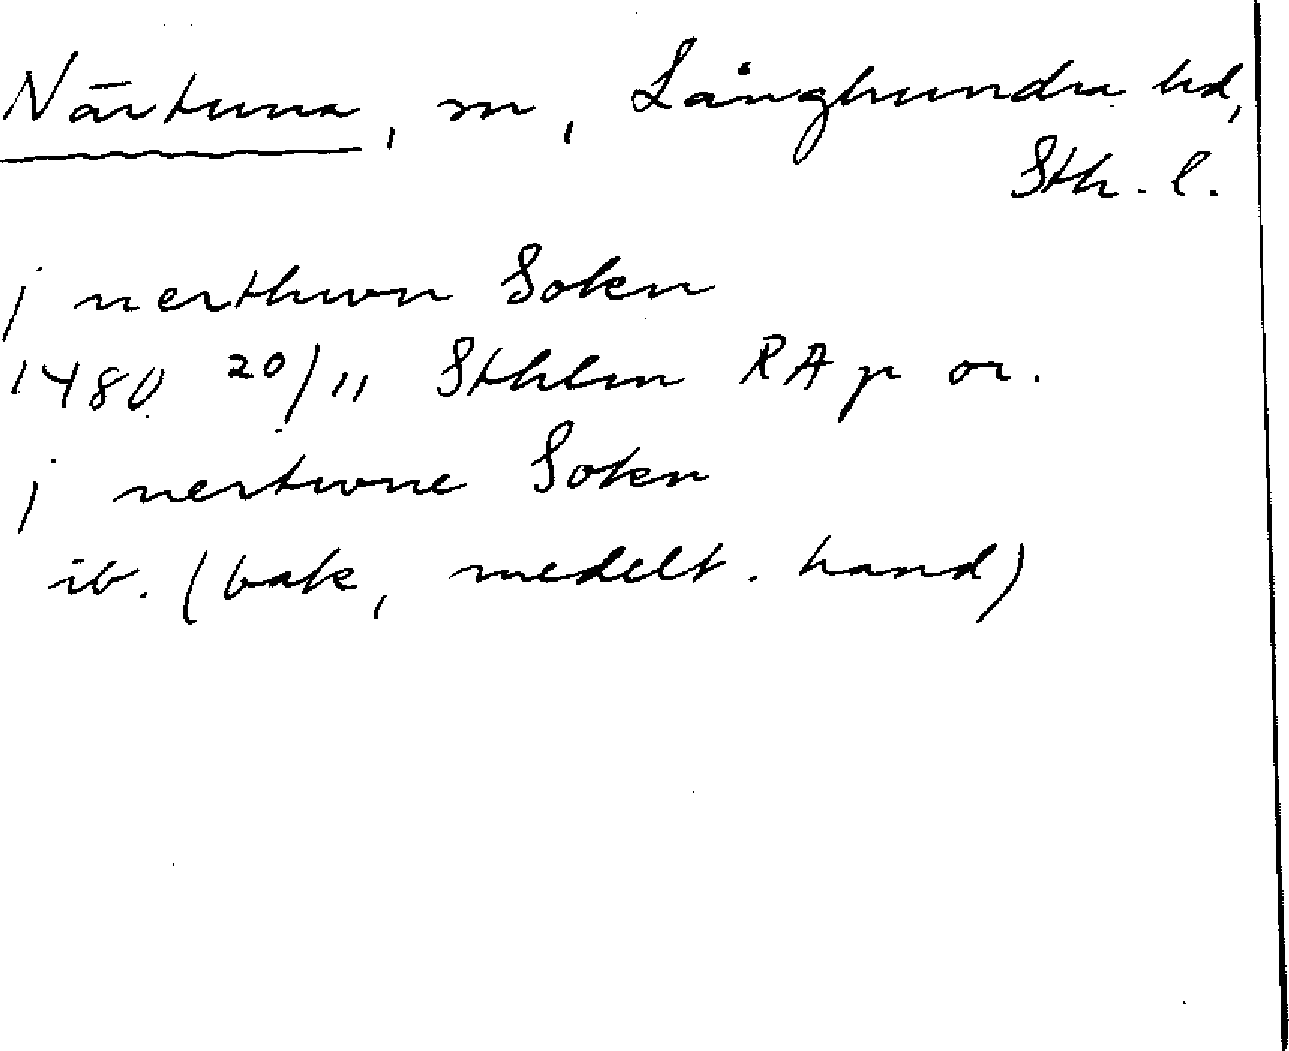 Närtuna, sn, Långhundra hd,
Sth. l.
j nerthwn Sokn
1480 20/11 Sthlm RA p or.
j nertwne Sokn
ib. (bak, medelt. hand)